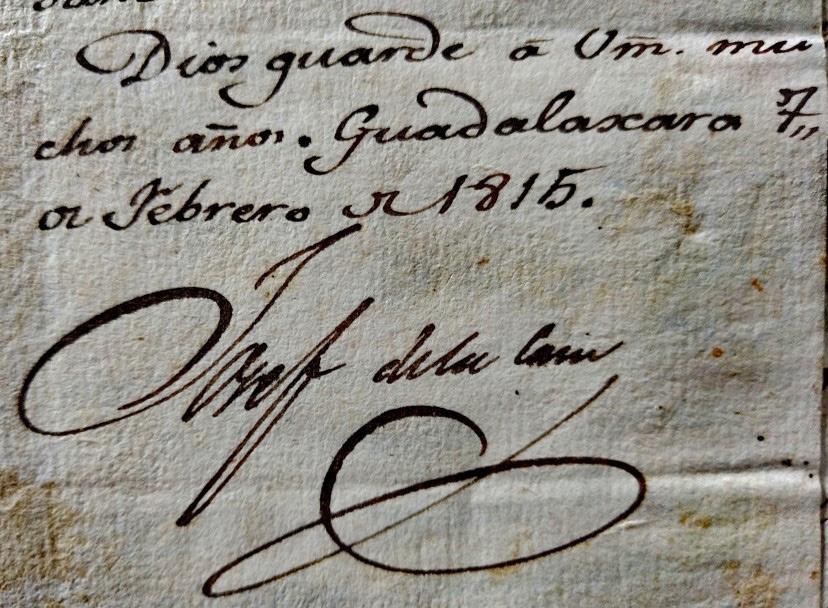 Dios guarde a Vm. mu
chos años. Guadalaxara 7,,
de Febrero de 1815.
Josef de la